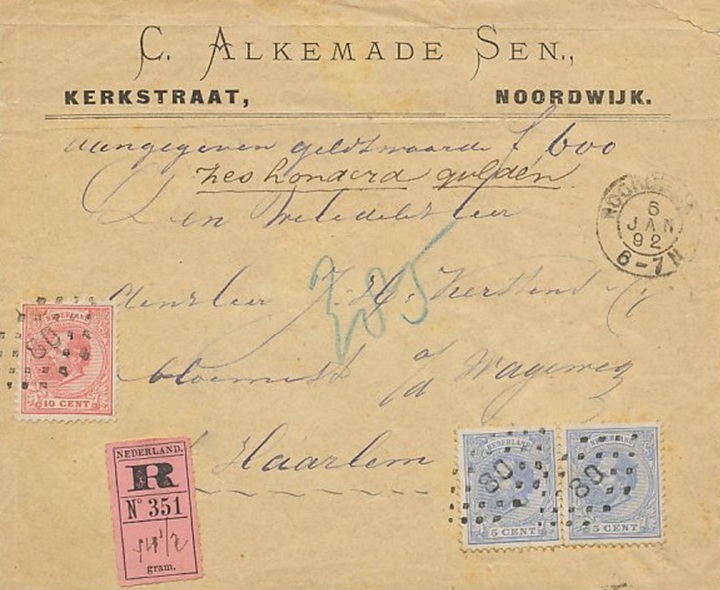 C. ALKEMADE SEN.,
KERKSTRAAT, NOORDWIJK.
Aangegeven geldswaarde f 600
zes honderd gulden.
Den Weledelen Heer
NOORDWIJK
6
JAN
92
6-7N
385
den Heer J. H.
bloemist o/d Wageweg
Haarlem
NEDERLAND
80
10 CENT
NEDERLAND.
R
No 351
gram.
NEDERLAND
80
5 CENT
NEDERLAND
80
5 CENT